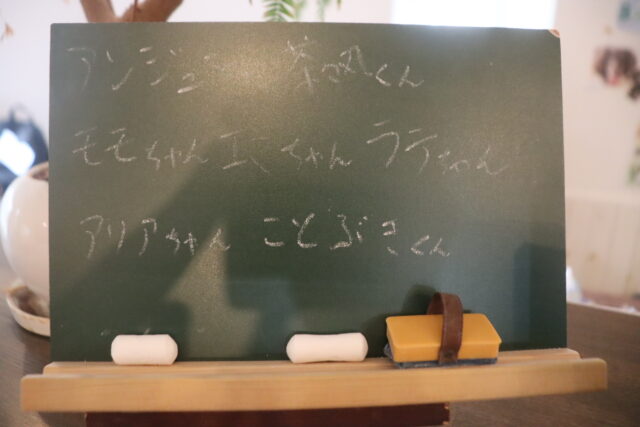 アンジュ 茶々丸くん
モモちゃん エくちゃん ラテちゃん
アリアちゃん ことぶきくん